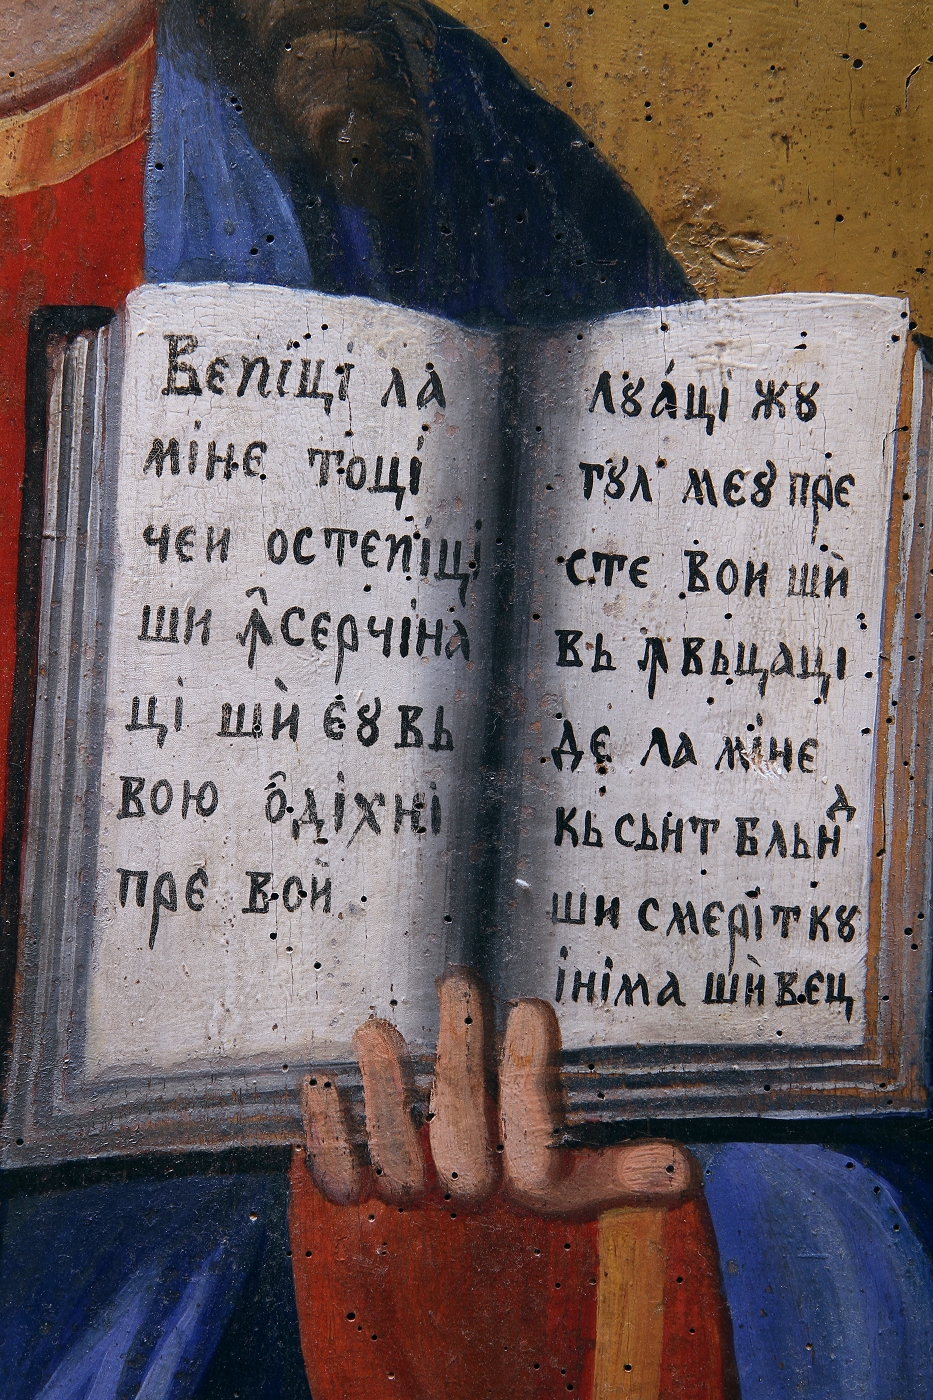 Вепіщі ла
міне тоці
чеи остепіці
ши ꙟсерчіна
ці шѝ єꙋ вь
вою ѻ҆діхні
прє вои
лꙋáці жꙋ
гꙋл меꙋ прє
сте вои шѝ
вь ꙟвьцаці
де ла міне
кь сьнт бльнд
ши смеріт кꙋ
ініма шѝ вец